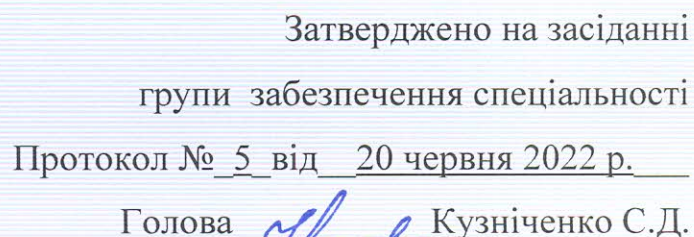 Затверджено на засіданні
групи забезпечення спеціальності
Протокол №_5_від__20 червня 2022 р.___
Голова Кузніченко С.Д.